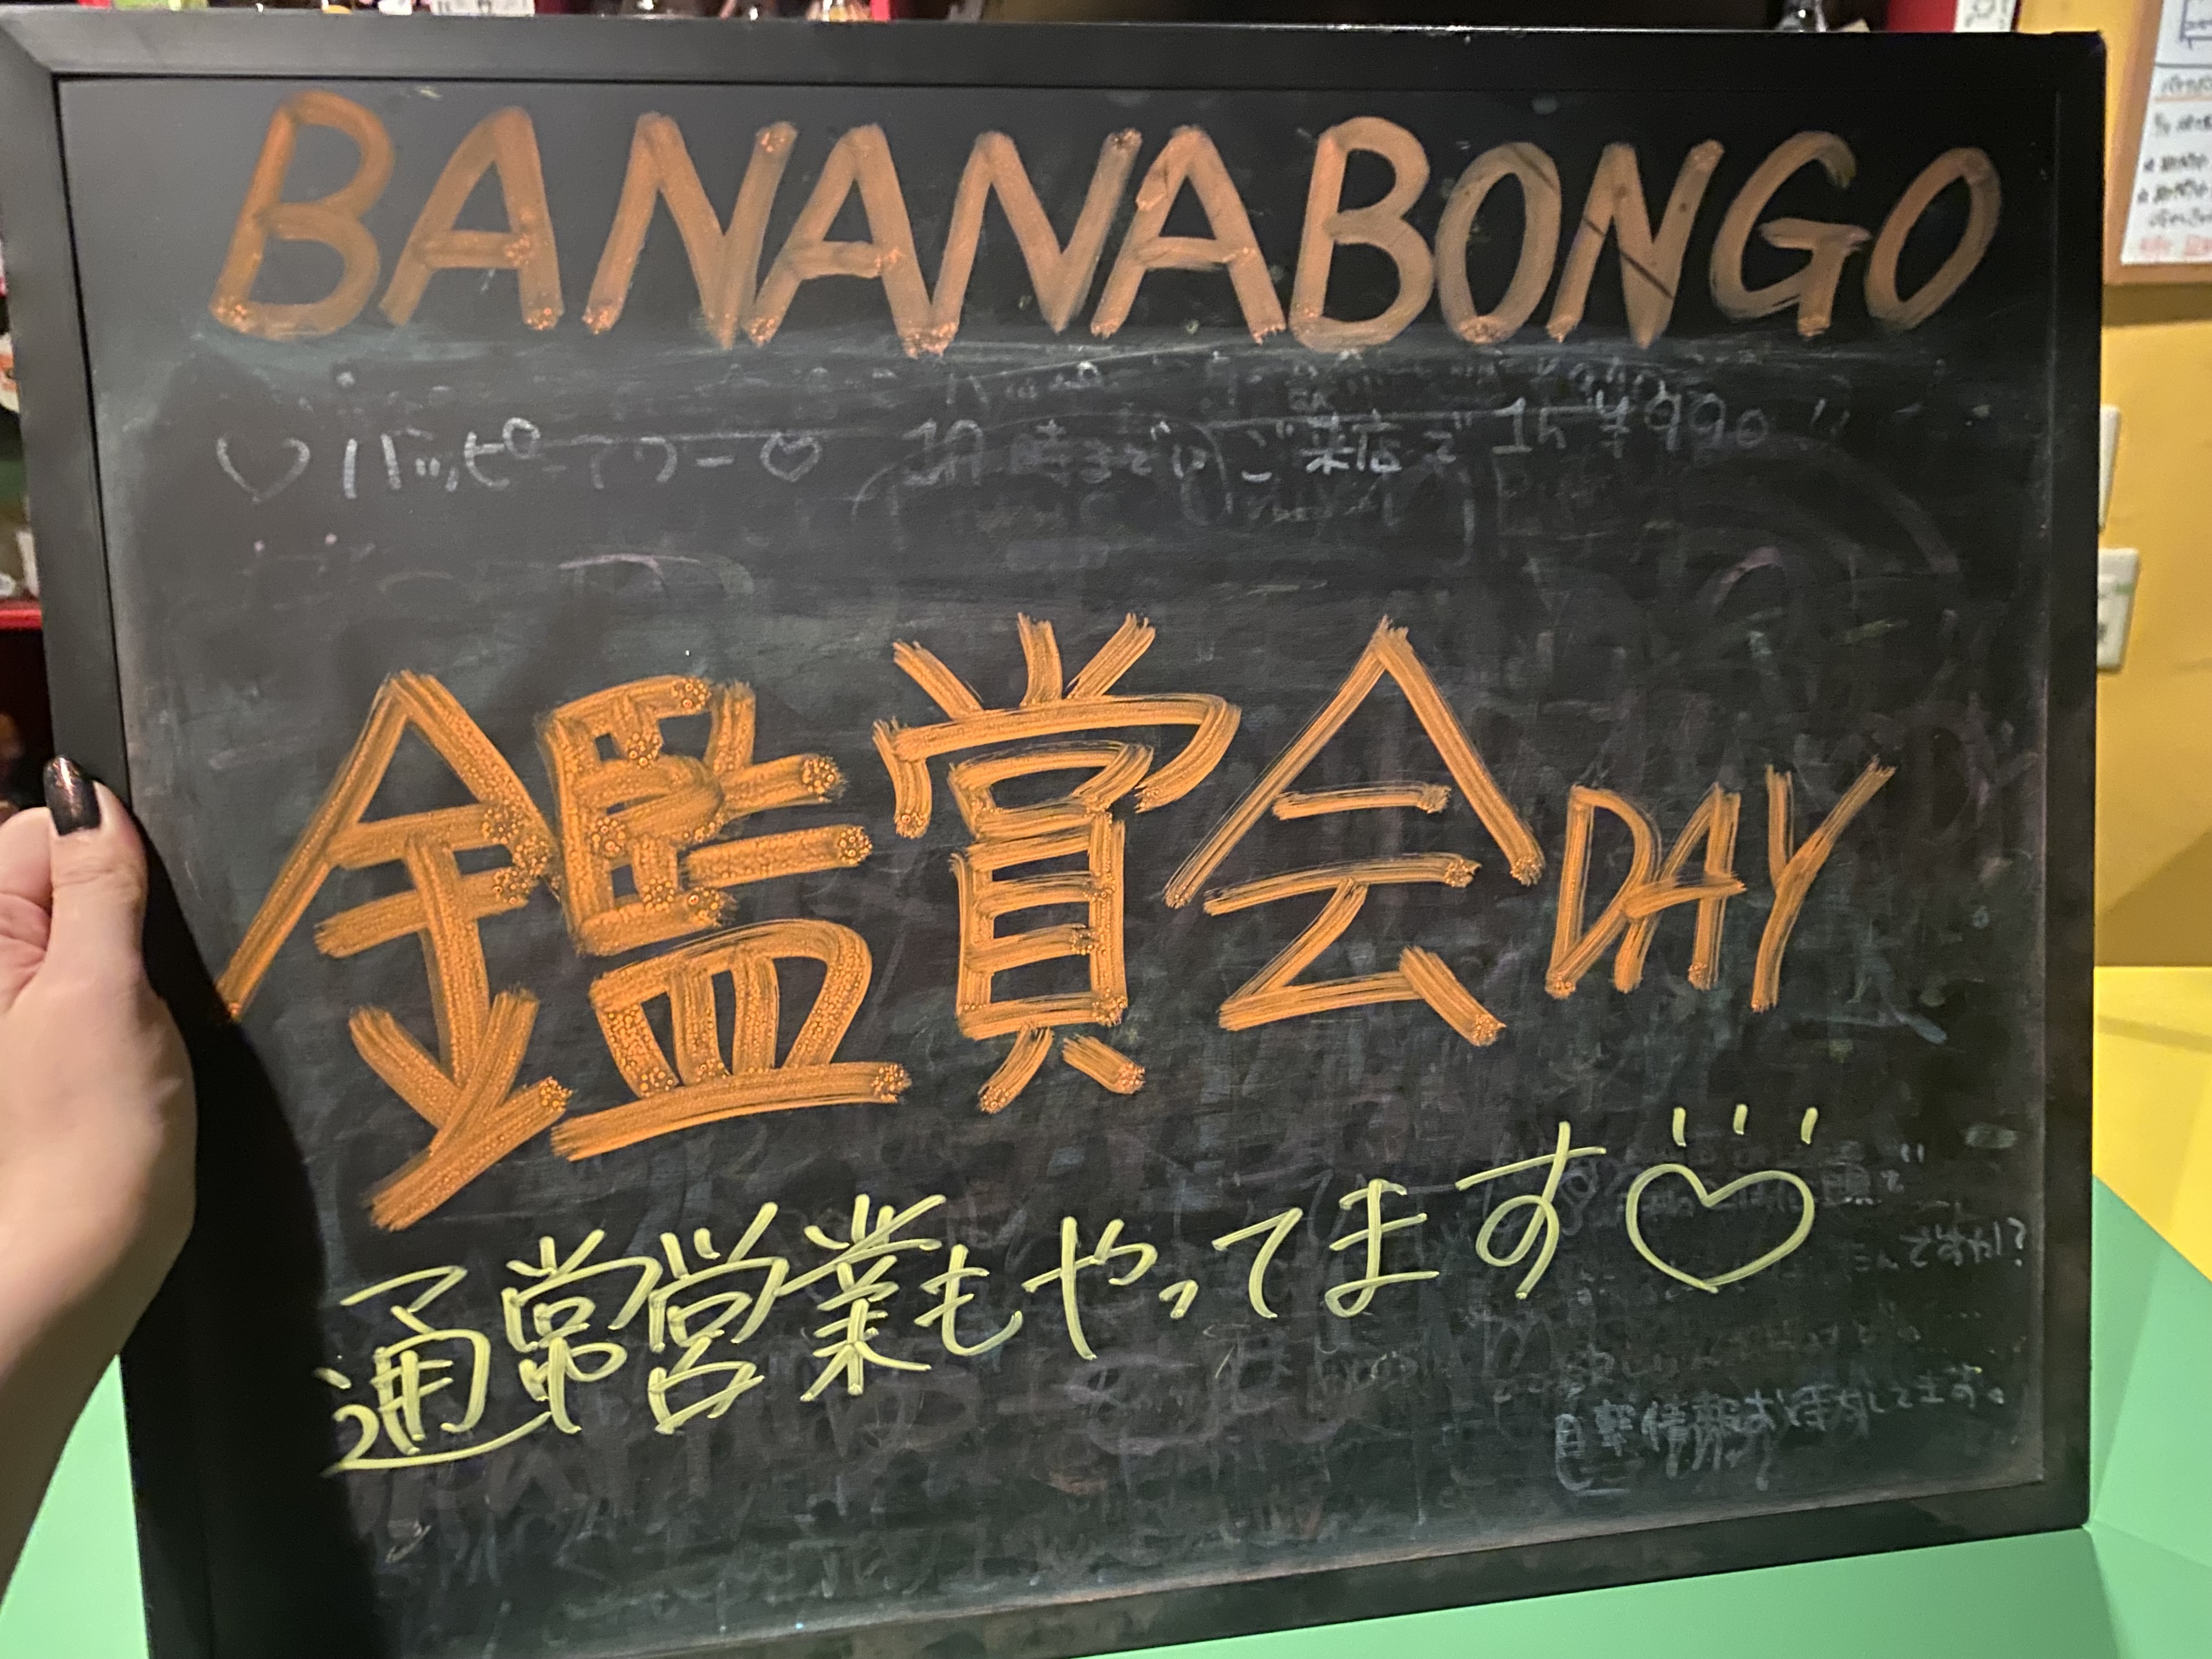 BANANABONGO
♡ハッピーアワー♡ 時までにご来店で 1h ¥990!!
鑑賞会DAY
通常営業もやってます♡
ですか!?
目撃情報お待ちしてます。